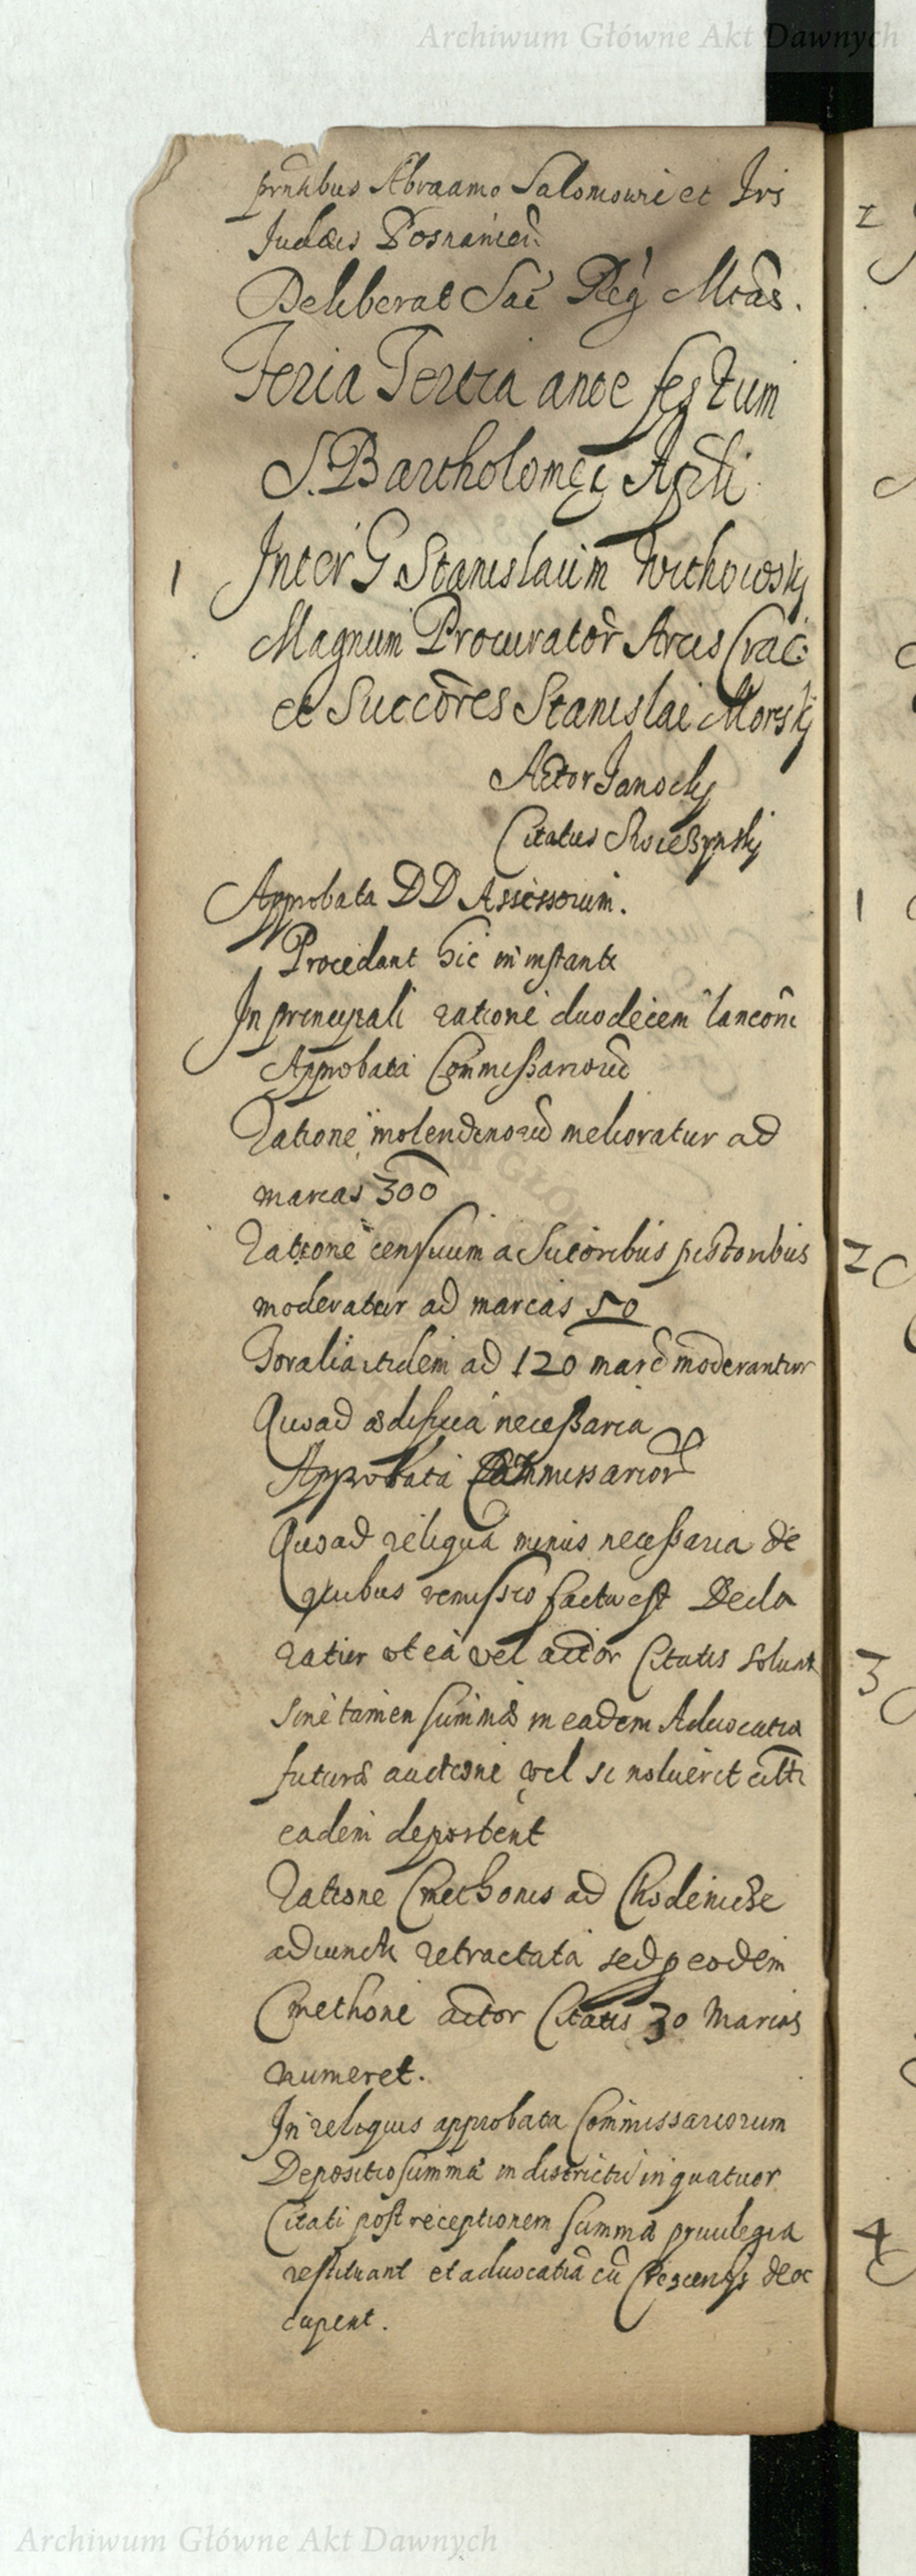 Archiwum Główne Akt Dawnych
prntibus Abraamo Salomowi et Irs
Judæis Posnanien:
Deliberat Sac Reg Mtas.
Feria Tertia ante festum
S. Bartholomęi Apli
1 Inter G Stanislaum Withowsky
Magnum Procurator Arcis Crac:
et Succores Stanislai Morsky
Actor Janocky
Citatus
Approbata DD Assessorum.
Procedant hic in instanti
In principali ratione duodecem laneor
Approbata Commissarior
Ratione molendinor melioratur ad
marcas 300
Ratione censuum a Sutoribus pistoribus
moderatur ad marcas 50
Foralia itidem ad 120 marc moderantur
Quoad ædificia necessaria
Approbata Commissarior
Quoad reliqua minus necessaria de
quibus remissio facta est Decla
ratur ut ea vel actor Citatis solvat
sine tamen summæ in eadem Advocatia
futura auctione vel si noluerit
eadem deportent
Ratione Cmethonis ad Chodenicze
adiuncti retractata sed p eodem
Cmethone actor Citatis 30 Marcas
numeret.
In reliquis approbata Commissariorum
Depositio summæ in districtu in quatuor
Citati post receptionem summæ privilegia
restituant et advocatia cu deoc
cupent.
2
1
2
3
4
Archiwum Główne Akt Dawnych